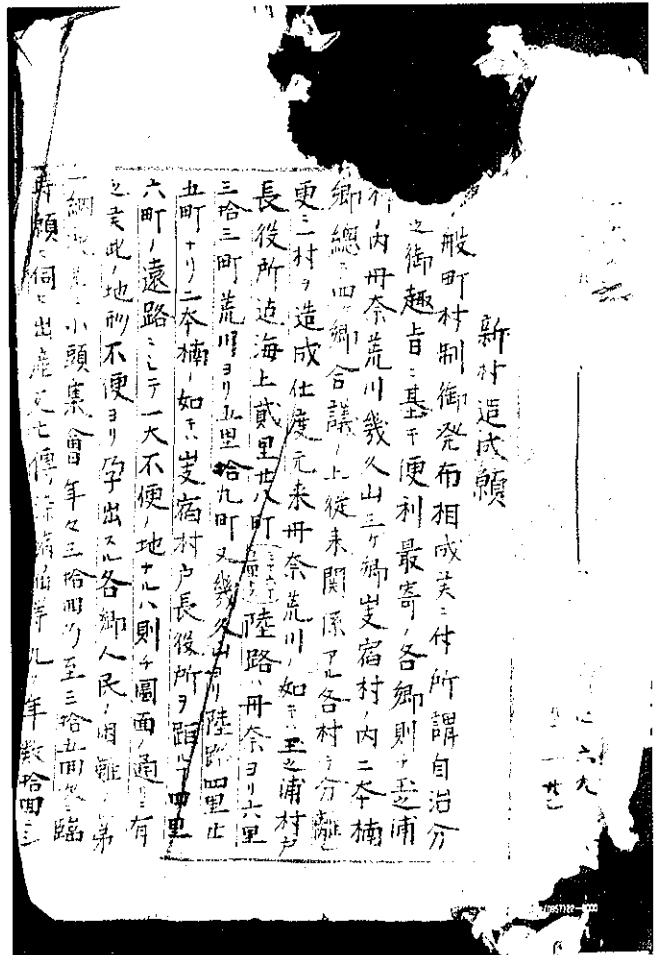 新村造成願
般町村制御発布相成美ニ付所謂自治分
之御趣旨ニ基キ便利最寄ノ各郷則チ玉之浦
村ノ内丹奈荒川幾久山三ヶ郷岐宿村ノ内二本楠
郷總テ四ヶ郷合議ノ上従来関係アル各村ヲ分離シ
更ニ一村ヲ造成仕度元来丹奈荒川ノ如キハ玉之浦村戸
長役所迠海上貳里廿八町陸路ハ丹奈ヨリ六里
三拾三町荒川ヨリ五里拾九町又幾久山ヨリ陸路四里廿
五町ナリ二本楠ノ如キハ岐宿村戸長役所ヲ距ル四里
六町ノ遠路ニシテ一大不便ノ地ナルハ則チ圖面ノ通ニ有
之美此ノ地形不便ヨリ孕出スル各郷人民ノ困難ハ第
一網小頭集會年々三拾回乃至三拾五回臨
時願伺出産死亡年数拾回
(0957)22-